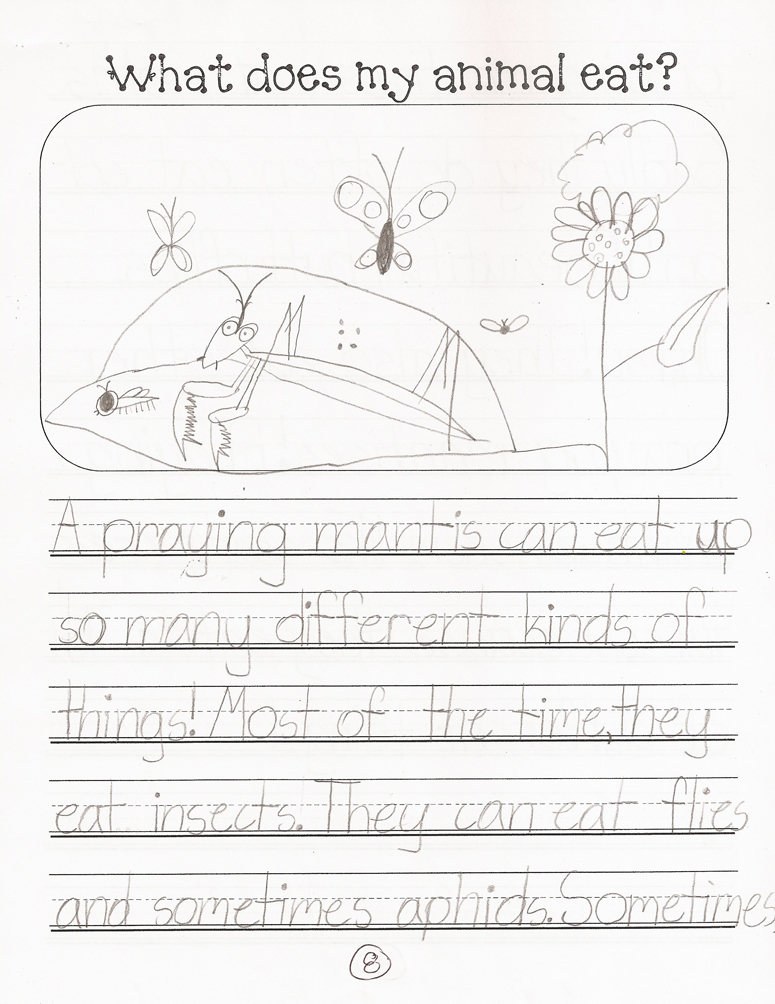 What does my animal eat?
A praying mantis can eat up
so many different kinds of
things! Most of the time, they
eat insects. They can eat flies
and sometimes aphids. Sometimes
8